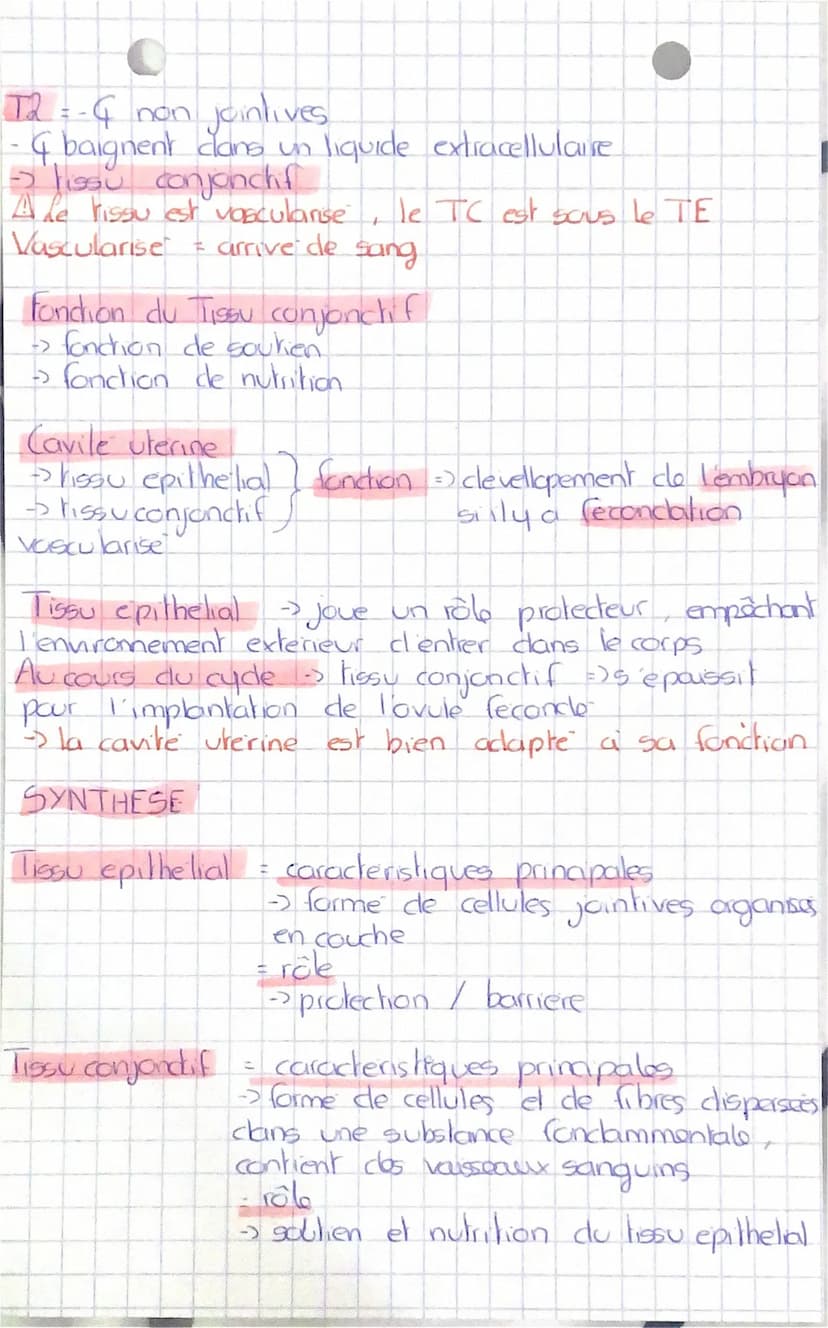 T2 = - ₵ non jointives
- ₵ baignent dans un liquide extracellulaire
-> tissu conjonctif
⚠ le tissu est vascularisé, le TC est sous le TE
Vascularisé = arrivé de sang
Fonction du Tissu conjonctif
-> fonction de soutien
-> fonction de nutrition
Cavité uterine
-> tissu epithelial } fonction => devellopement de l'embryon
-> tissu conjonctif si il y a fécondation
vascularisé
Tissu epithelial -> joue un rôle protecteur, empêchant
l'environnement exterieur d'entrer dans le corps
Au cours du cycle -> tissu conjonctif => s'épaissit
pour l'implantation de l'ovule fécondé
-> la cavité uterine est bien adapté à sa fonction
SYNTHESE
Tissu epithelial = caracteristiques principales
-> formé de cellules jointives organisés
en couche
= rôle
-> protection / barriere
Tissu conjonctif = caracteristiques principales
-> formé de cellules et de fibres dispersées
dans une substance fondammentale,
contient des vaisseaux sanguins
= rôle
-> soutien et nutrition du tissu epithelial